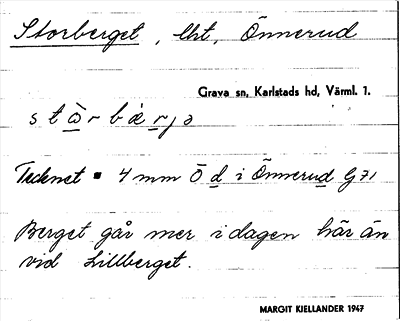 Storberget, lht, Önnerud
Grava sn, Karlstads hd, Värml. l.
s t ò r b æ̀ r j ə
Tecknet ▪ 4 mm Ö d i Önnerud G71
Berget går mer i dagen här än
vid Lillberget.
MARGIT KJELLANDER 1947